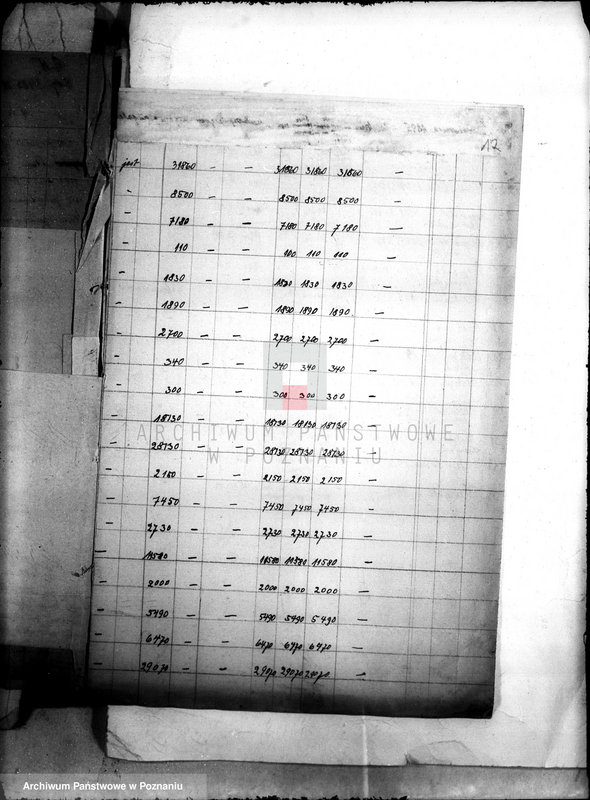 17
jest 31860 — — 31860 31860 31860 —
" 8500 — — 8500 8500 8500
" 7180 — — 7180 7180 7180 —
" 110 — — 100 110 110 —
" 1830 — — 1830 1830 1830 —
" 1890 — — 1890 1890 1890 —
" 2700 — — 2700 2700 2700 —
" 340 — — 340 340 340 —
" 300 — — 300 300 300 —
— 18730 — — 18730 18730 18730 —
— 28730 — — 28730 28730 28730 —
— 2150 — — 2150 2150 2150 —
— 7450 — — 7450 7450 7450 —
— 2730 — — 2730 2730 2730 —
— 11500 — — 11500 11500 11500 —
— 2000 — — 2000 2000 2000 —
— 5490 — — 5490 5490 5490 —
— 6470 — — 6470 6470 6470 —
— 29070 — — 29070 29070 29070 —
ARCHIWUM PAŃSTWOWE
W POZNANIU
Archiwum Państwowe w Poznaniu